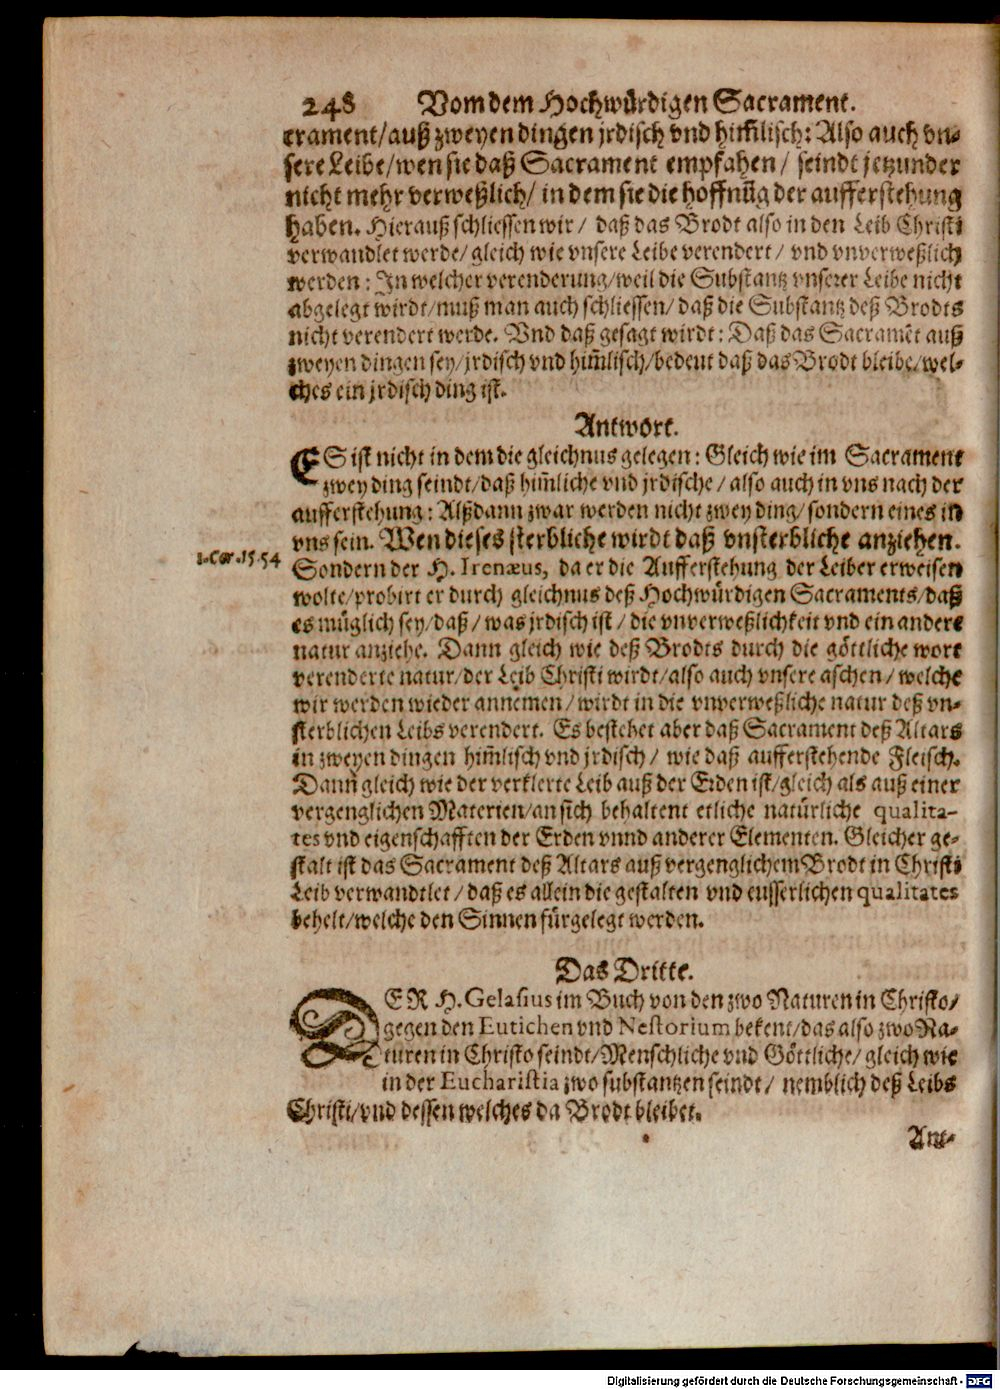 248 Vom dem Hochwürdigen Sacrament.
crament/auß zweyen dingen jrdisch vnd him̃lisch: Also auch vn-
sere Leibe/wen sie daß Sacrament empfahen/ seindt jetzunder
nicht mehr verweßlich/ in dem sie die hoffnūg der aufferstehung
haben. Hierauß schliessen wir/ daß das Brodt also in den Leib Christi
verwandlet werde/gleich wie vnsere Leibe verendert/ vnd vnverweßlich
werden: In welcher verenderung/weil die Substantz vnserer Leibe nicht
abgelegt wirdt/muß man auch schliessen/ daß die Substantz deß Brodts
nicht verendert werde. Vnd daß gesagt wirdt: Daß das Sacramēt auß
zweyen dingen sey/jrdisch vnd him̃lisch/bedeut daß das Brodt bleibe/wel-
ches ein jrdisch ding ist.
Antwort.
ES ist nicht in dem die gleichnus gelegen: Gleich wie im Sacrament
zwey ding seindt/daß him̃liche vnd jrdische/ also auch in vns nach der
aufferstehung: Alßdann zwar werden nicht zwey ding/ sondern eines in
vns sein. Wen dieses sterbliche wirdt daß vnsterbliche anziehen.
1. Cor. 15. 54
Sondern der H. Irenæus, da er die Aufferstehung der Leiber erweisen
wolte/probirt er durch gleichnus deß Hochwürdigen Sacraments/daß
es müglich sey/daß/was jrdisch ist/ die vnverweßlichkeit vnd ein andere
natur anziehe. Dann gleich wie deß Brodts durch die göttliche wort
verenderte natur/der Leib Christi wirdt/also auch vnsere aschen/ welche
wir werden wieder annemen/wirdt in die vnverweßliche natur deß vn-
sterblichen Leibs verendert. Es bestehet aber daß Sacrament deß Altars
in zweyen dingen him̃lisch vnd jrdisch/ wie daß aufferstehende Fleisch.
Dann gleich wie der verklerte Leib auß der Erden ist/gleich als auß einer
vergenglichen Materien/an sich behaltent etliche natürliche qualita-
tes vnd eigenschafften der Erden vnnd anderer Elementen. Gleicher ge-
stalt ist das Sacrament deß Altars auß vergenglichem Brodt in Christi
Leib verwandtlet/ daß es allein die gestalten vnd eusserlichen qualitates
behelt/welche den Sinnen fürgelegt werden.
Das Dritte.
DER H. Gelasius im Buch von den zwo Naturen in Christo/
gegen den Eutichen vnd Nestorium bekent/das also zwo Na-
turen in Christo seindt/Menschliche vnd Göttliche/ gleich wie
in der Eucharistia zwo substantzen seindt/ nemblich deß Leibs
Christi/vnd dessen welches da Brodt bleibet.
Ant-
Digitalisierung gefördert durch die Deutsche Forschungsgemeinschaft - DFG